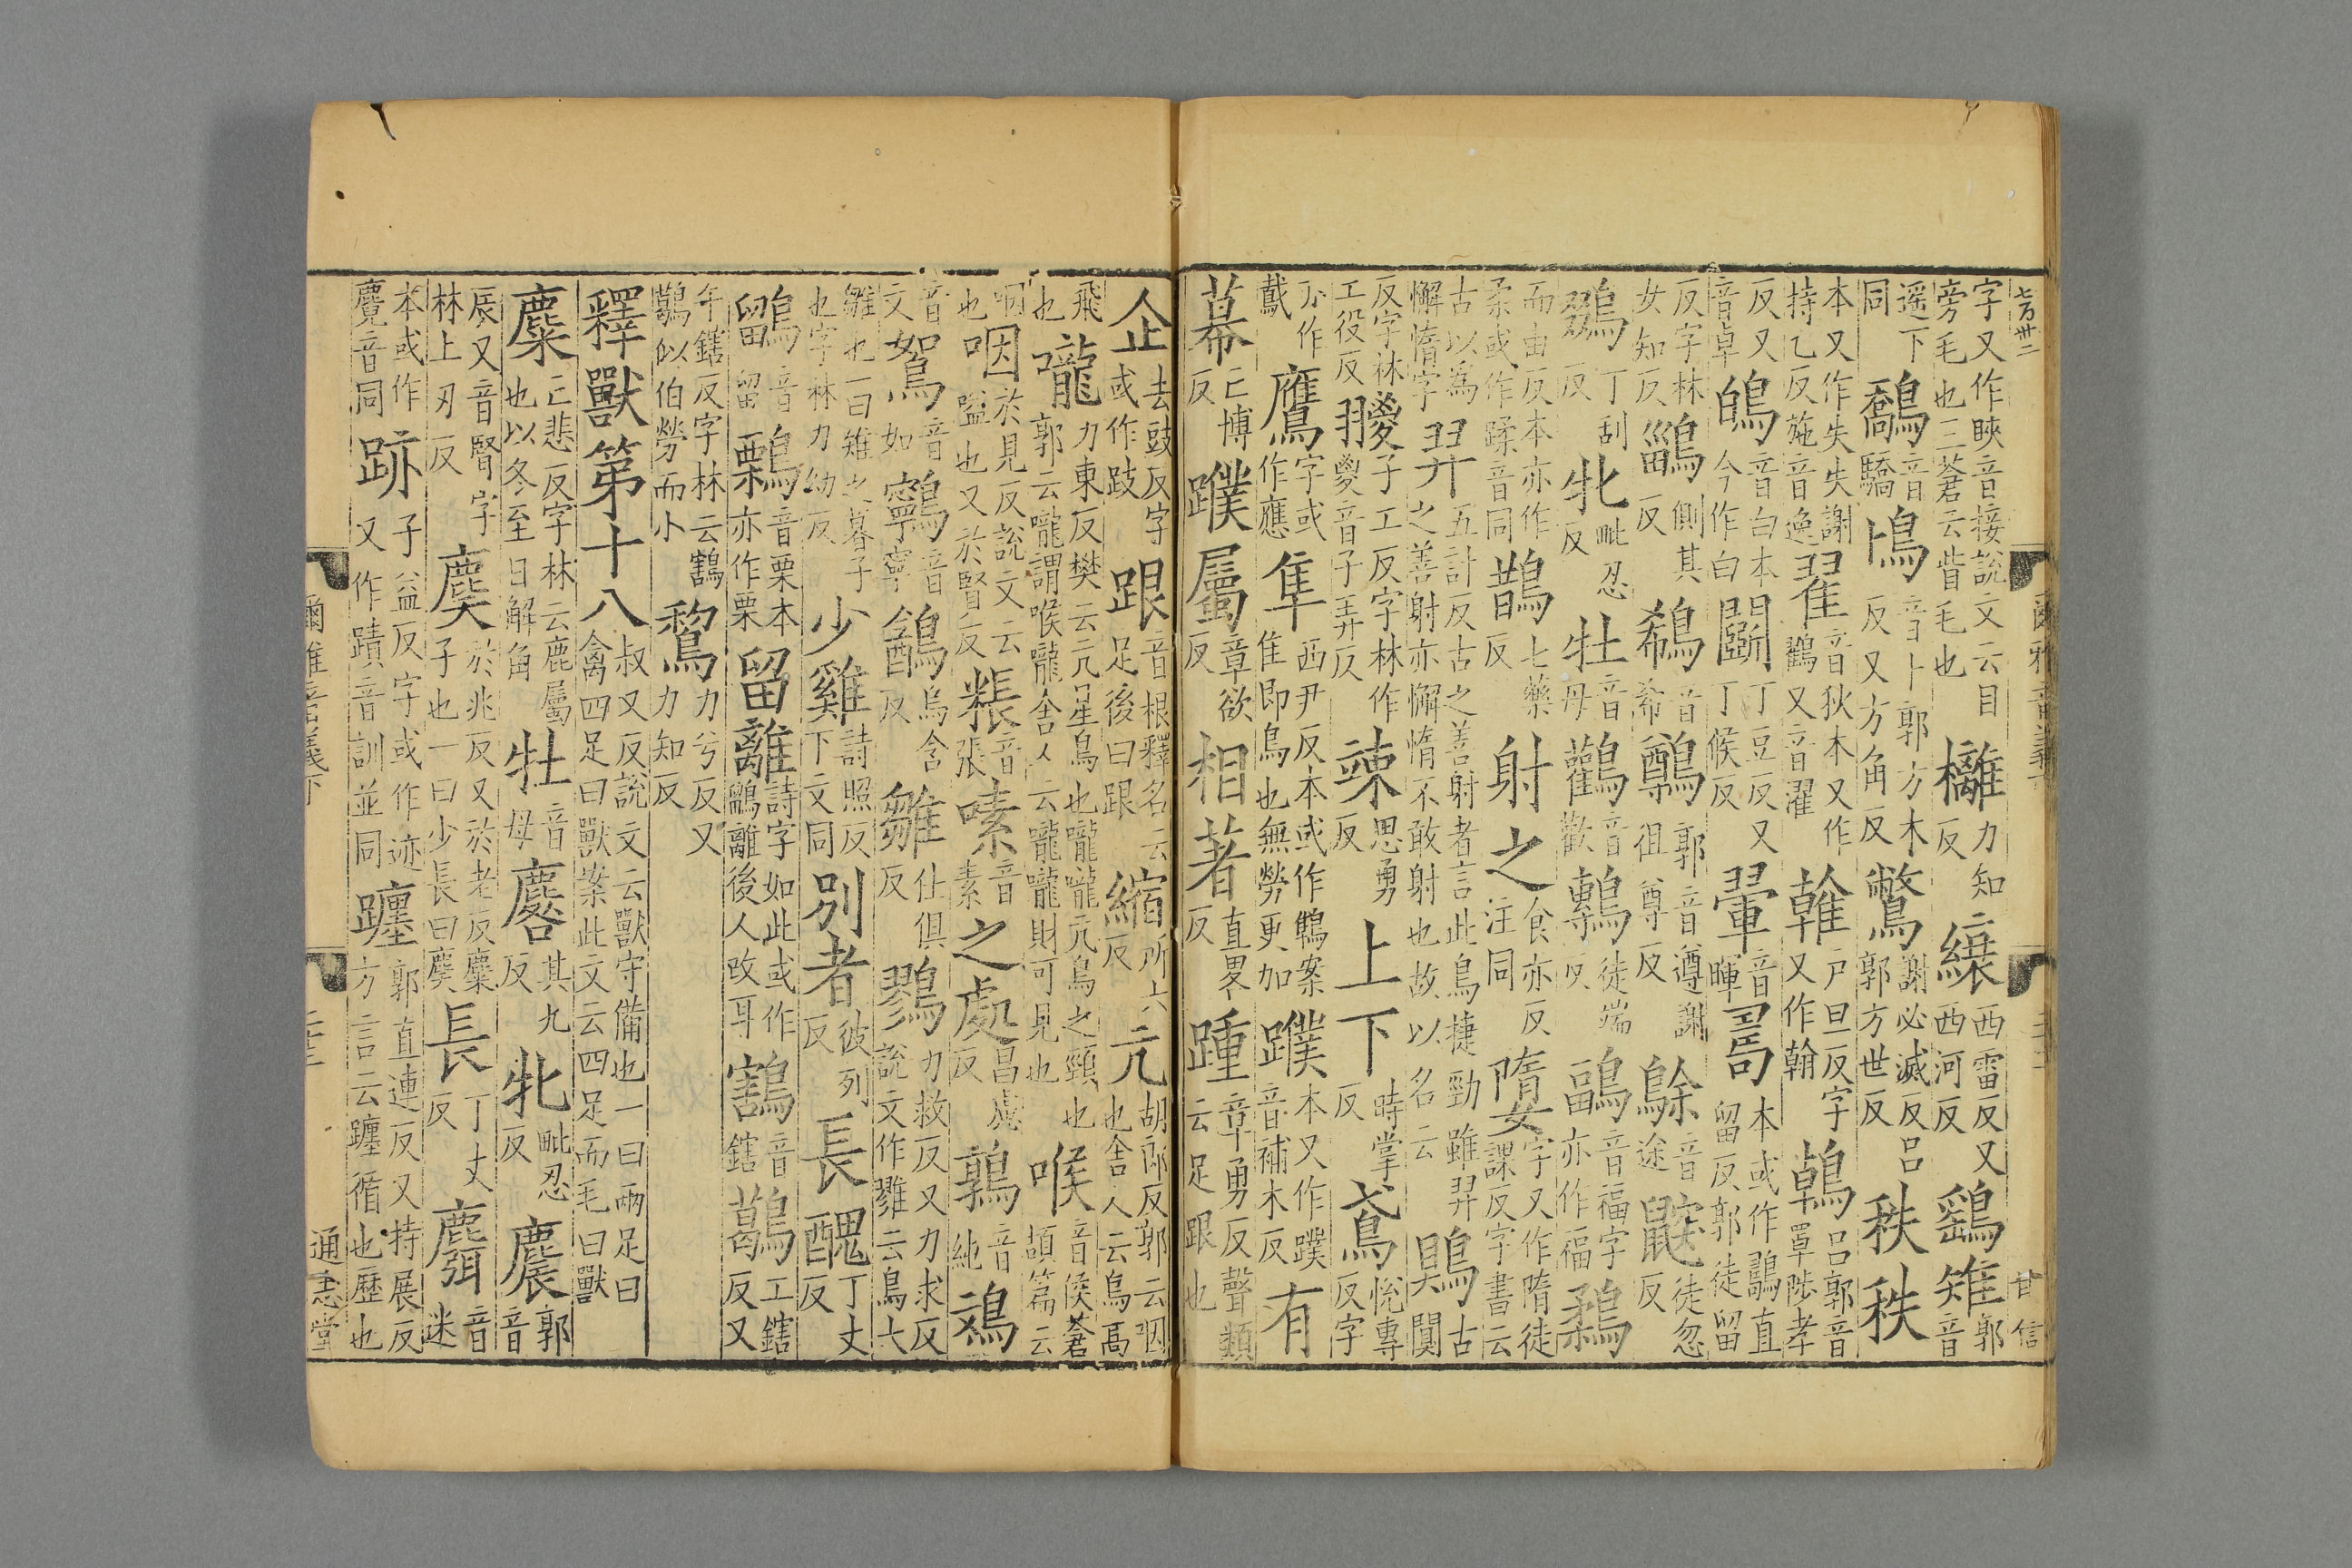 字又作睫音接說文云目旁毛也三蒼云眥毛也 㰚力知反 纕西雷反又西河反 鷂雉郭音
遥下同 鷮音驕 鳪音卜郭方木反又方角反 鷩謝必滅反呂郭方世反 秩秩
本又作失失謝持乙反施音逸 翟音狄本又作鸐又音濯 雗戶旦反字又作翰 鵫呂郭音罩陟孝
反又音卓 鵭音白本今作白 鬬丁豆反又丁候反 翬音暉 𠷎本或作鷊直留反郭徒留
反字林女知反 鶅側其反 鵗音希 鷷郭音遵謝徂尊反 鵌音途 鼵徒忽反
鵽丁刮反 牝毗忍反 牡音母 鸛音歡 鷒徒端反 鶝音福字亦作福 鶔
而由反本亦作柔或作蹂音同 鵲七藥反 射之食亦反注同 㜅字又作隋徒課反字書云
古以爲懈惰字 羿五計反古之善射者言此鳥捷勁雖羿之善射亦懈惰不敢射也故以名云 鶪古闃
反字林工役反 翪子工反字林作㚇音子弄反 竦思勇反 上下時掌反 鳶悅專反字
林作䳒 鷹字或作應 隼西尹反本或作鵻案隹即鳥也無勞更加 蹼本又作蹼音補木反 有
幕亡博反 蹼屬章欲反 相著直畧反 踵章勇反聲類云足跟也
企去豉反字或作跂 跟音根釋名云足後曰跟 縮所六反 亢胡郎反郭云咽也舍人云鳥高
飛也 嚨力東反樊云亢星鳥也嚨嚨亢鳥之頸也郭云嚨謂喉嚨舍人云嚨嚨財可見也 喉音侯蒼頡篇云
咽也 咽於見反說文云嗌也又於賢反 粻音張 嗉音素 之處昌慮反 鶉音純 鳼
音文 鴽音如 鸋音寧 鶕烏含反 雛仕俱反 鷚力救反又力求反說文作雡云鳥大
雛也一曰雉之暮子也字林力幼反 少雞詩照反下文同 別者彼列反 長醜丁丈反
鶹音留 鷅音栗本亦作栗 留離詩字如此或作鶹離後人改耳 鶷音鎋 鶡工鎋反又
午鎋反字林云鶷鶡似伯勞而小 鵹力兮反又力知反
釋獸第十八叔又反說文云獸守備也一曰兩足曰禽四足曰獸案此文云四足而毛曰獸
麋亡悲反字林云鹿屬也以冬至日解角 牡音母 麔其九反 牝毗忍反 麎郭音
辰又音腎字林上刃反 麌於兆反又於老反麋子也一曰少長曰麌 長丁丈反 麛音迷
本或作麑音同 跡子益反字或作迹又作蹟音訓並同 躔郭直連反又持展反方言云躔循也歷也
爾雅音義下
通志堂
甘信